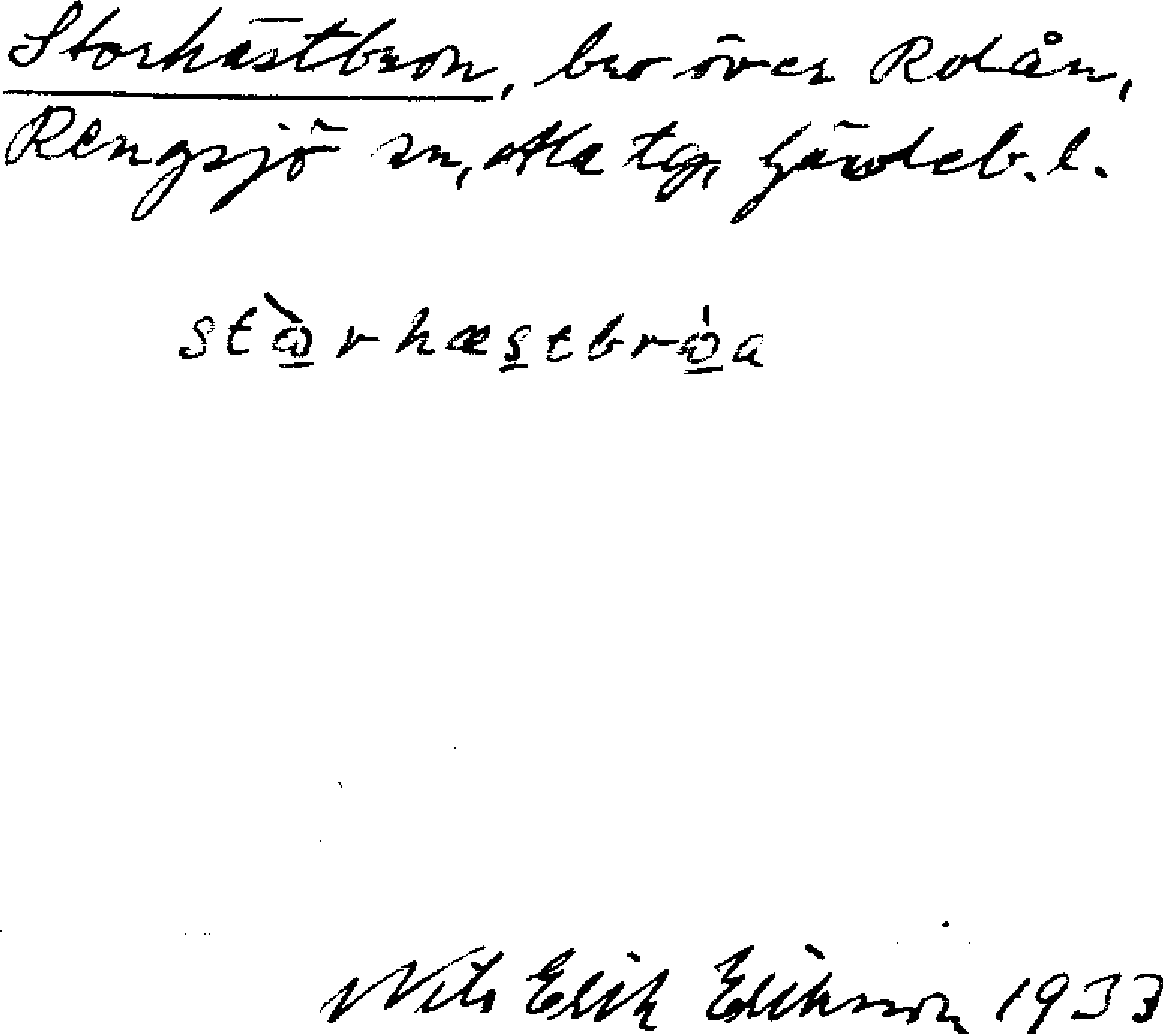 Storhästbron, bro över Rolån,
Rengsjö sn, Ala tg, Gävleb. l.
stòrhæstbróa
Nils Erik Eriksson 1933